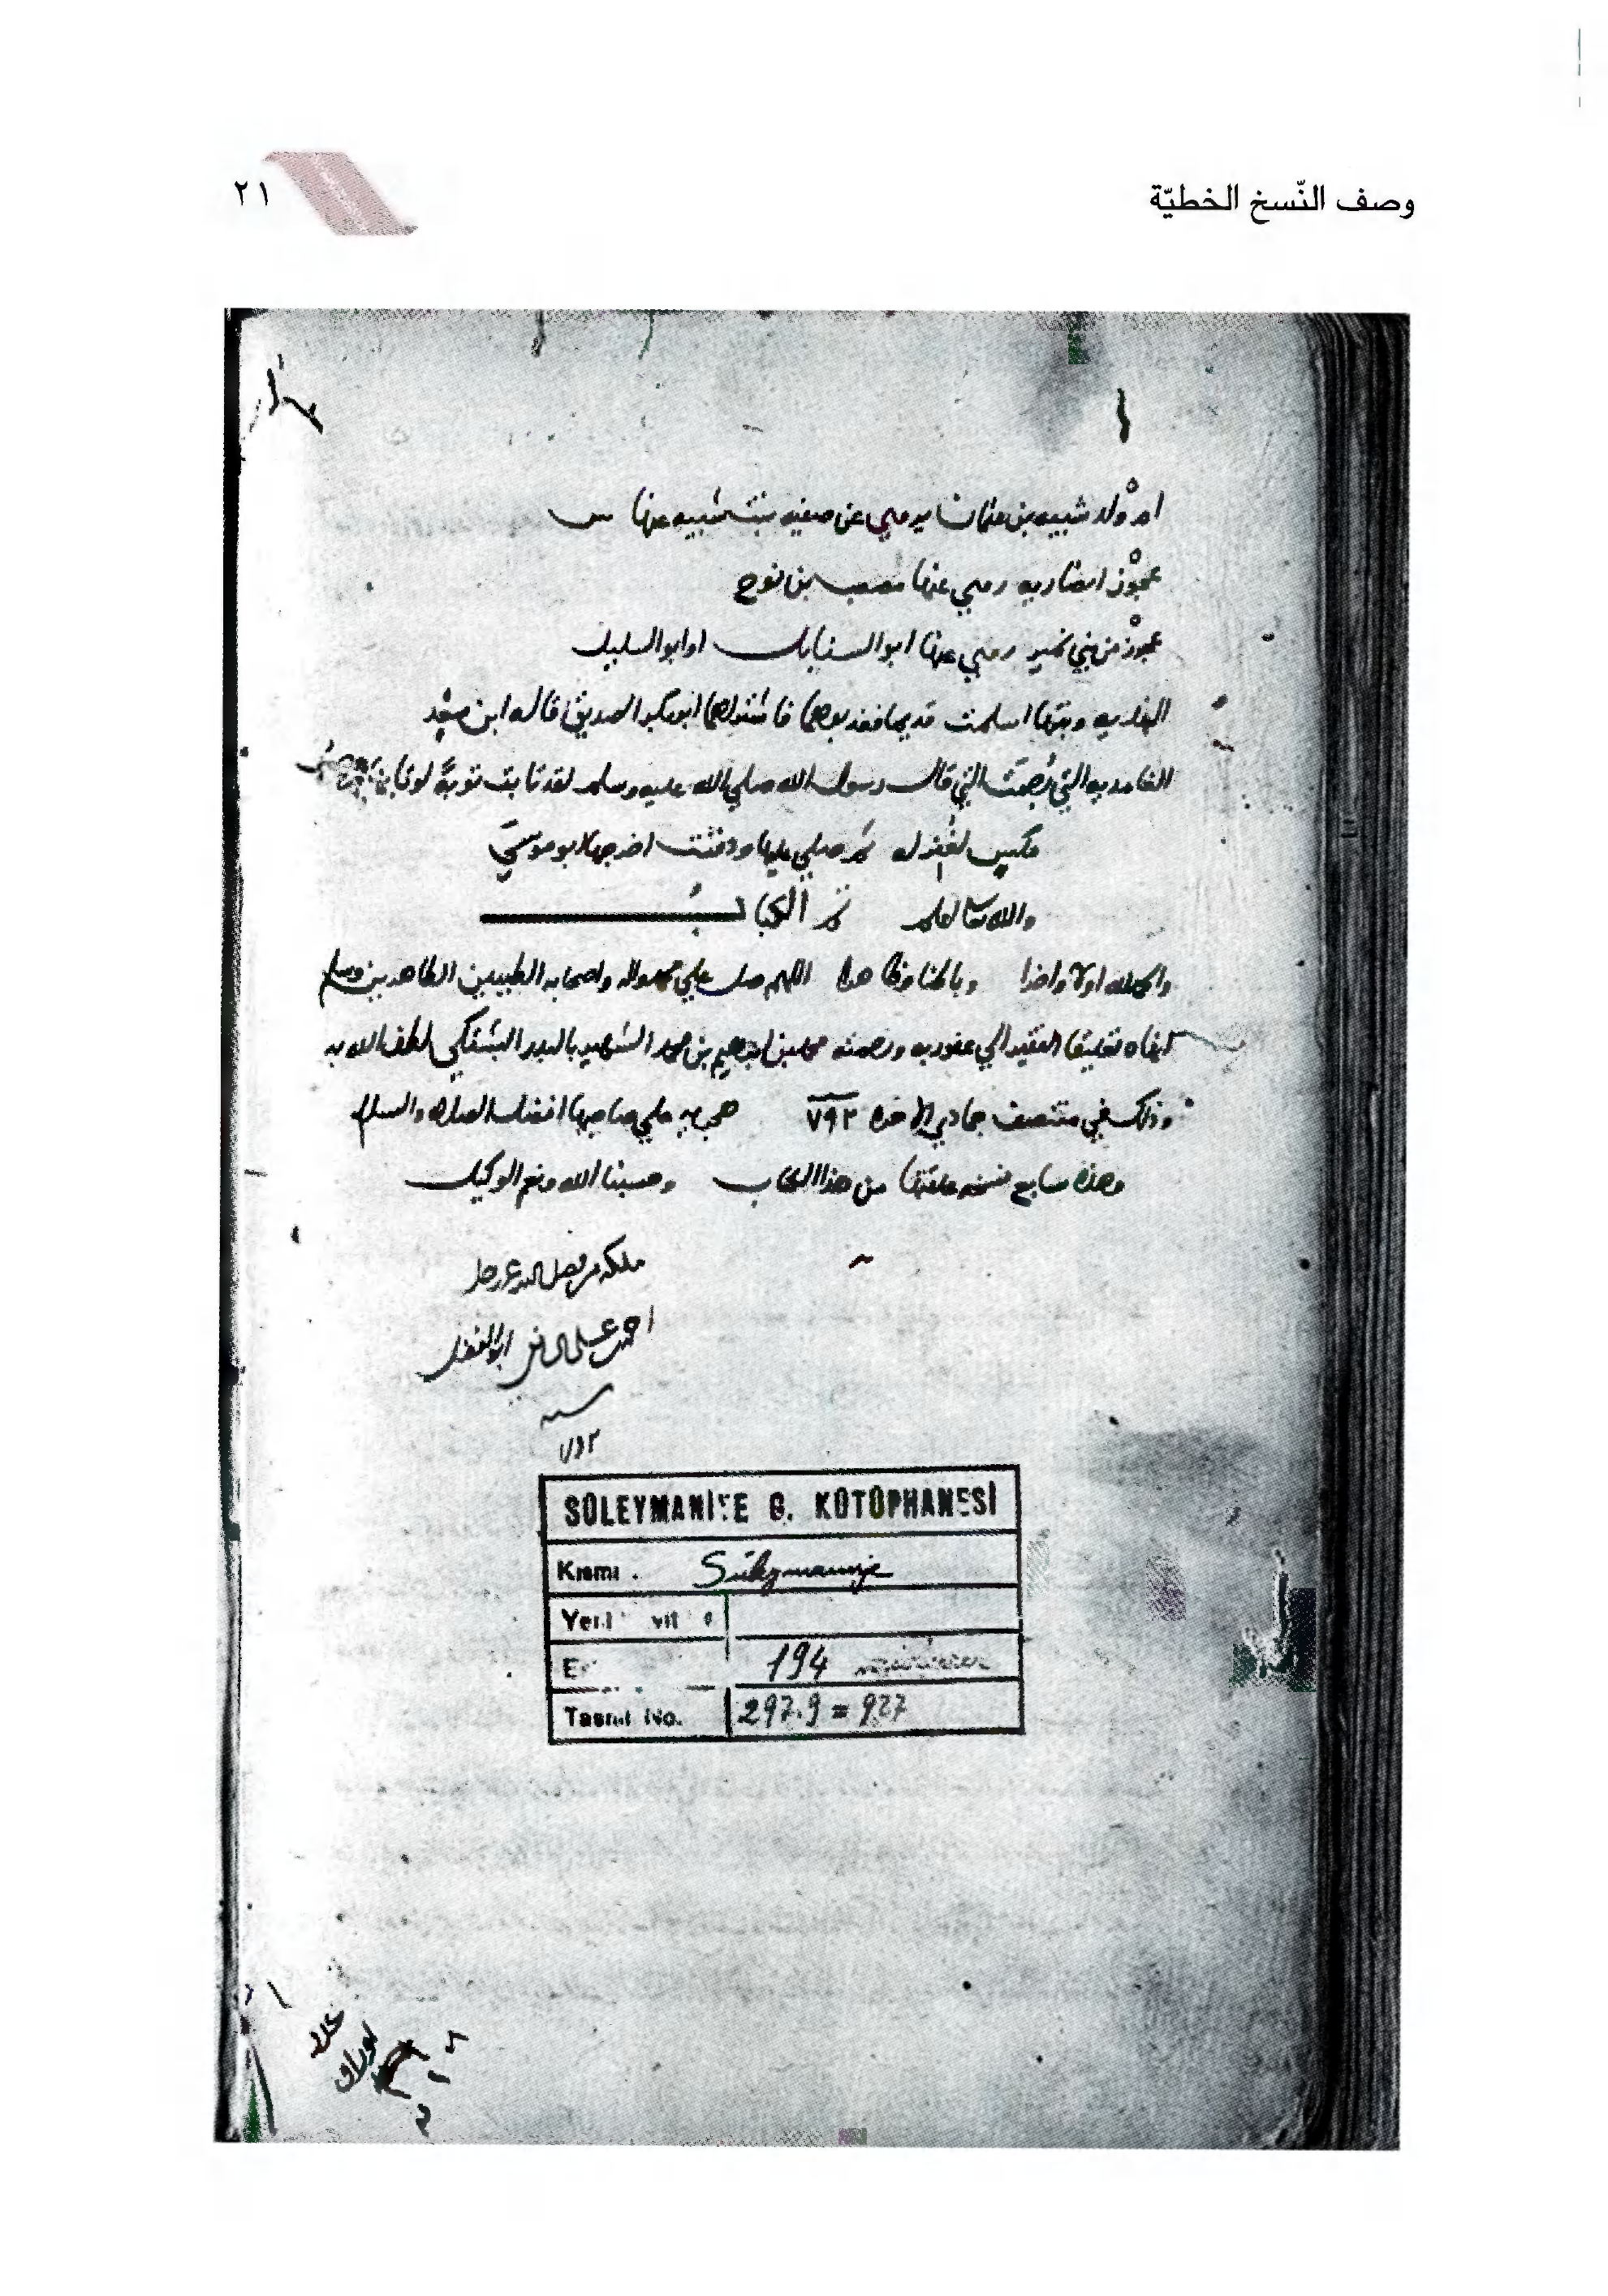 وصف النّسخ الخطيّة
٢١
ام ولد شيبه بن عثمان يروي عن صفيه بنت شيبه عنها س
عجوز انصاريه روي عنها مصعب بن نوح
عجوز من بني نمير روي عنها ابو السنابل او ابو السليل
وبنتها اسلمت قديما فاشتراهما ابو بكر الصديق قاله ابن سعد
الغامديه التي رجمت التي قال رسول الله صلي الله عليه وسلم لقد تابت توبة لو تابها
مكس لغفر له ثم صلي عليها ودفنت اخرجها ابو موسي
والله تعالي اعلم تم الكتاب
والحمد لله اولا واخرا وباطنا وظاهرا اللهم صل علي محمد واله واصحابه الطيبين الطاهرين وسلم
انهاه تعليقا الفقير الي عفو ربه ورحمته محمد بن ابرهيم بن محمد الشهير بالبدر البشتكي لطف الله به
وذلك في منتصف جمادي الاخره ٧٩٢ هجريه علي صاحبها افضل الصلاه والسلام
وهذه سابع نسخه علقتها من هذا الكتاب وحسبنا الله ونعم الوكيل
ملكه من فضل الله عز وجل
احمد بن علي ابو الفضل
سنه
SÜLEYMANİYE G. KÜTÜPHANESİ
Kısmı . Süleymaniye
194
Tasnif No. 297.9 = 927